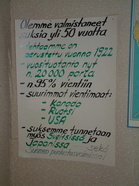 Olemme valmistaneet
suksia yli 50 vuotta
Tehtaamme on
perustettu vuonna 1922
- vuosituotanto nyt
n. 20 000 paria
- n 95% vientiin
- suurimmat vientimaat:
- Kanada
- Ruotsi
- USA
- suksemme tunnetaan
myös Sveitsissä ja
Japanissa